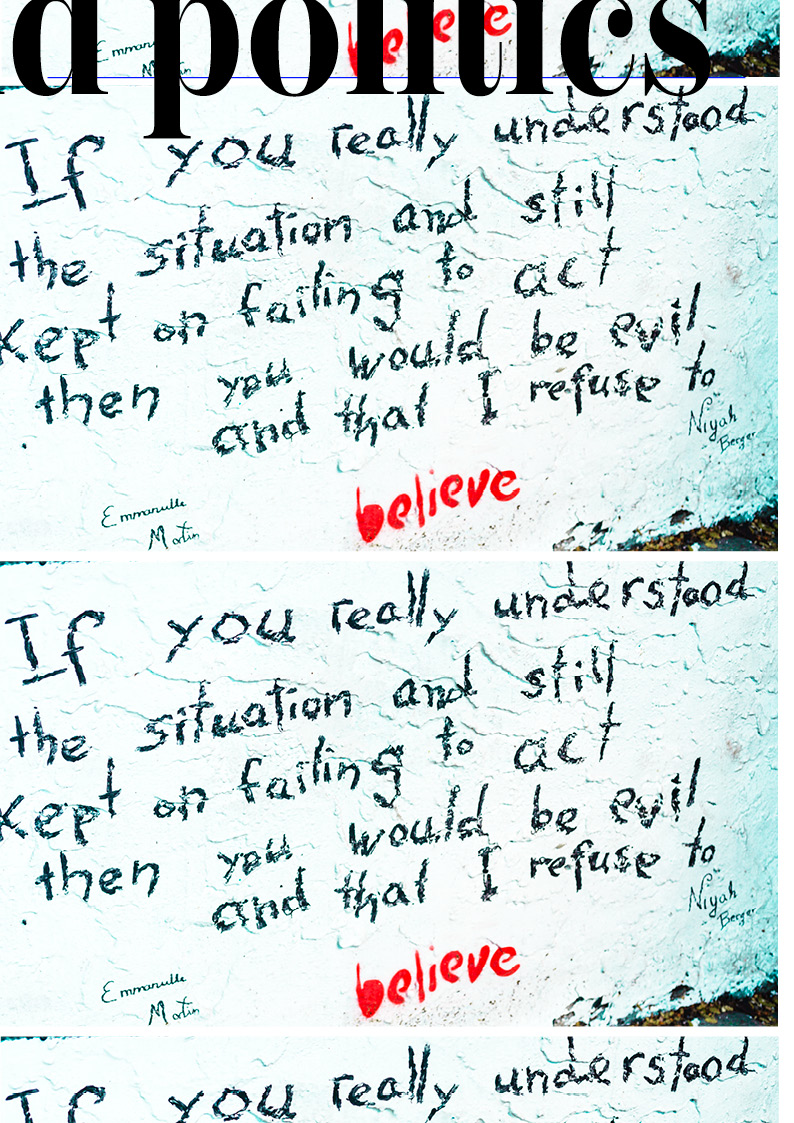 d politics
Emmanuelle
Martin
believe
If you really understood
the situation and still
kept on failing to act
then you would be evil
and that I refuse to
Niyah
Berger
believe
Emmanuelle
Martin
If you really understood
the situation and still
kept on failing to act
then you would be evil
and that I refuse to
Niyah
Berger
believe
Emmanuelle
Martin
If you really understood